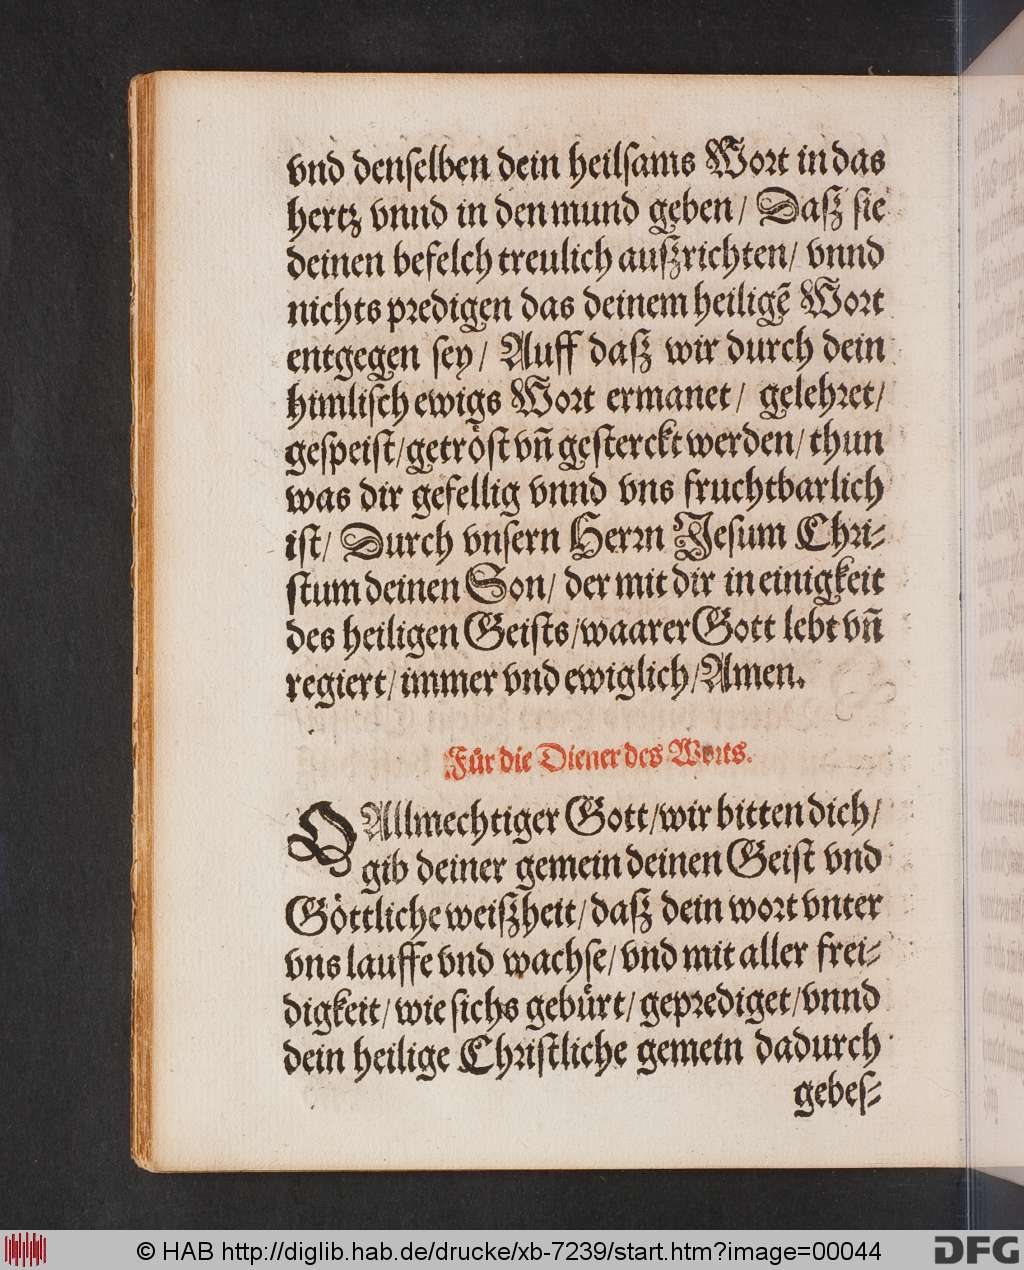 vnd denſelben dein heilſams Wort in das
hertz vnnd in den mund geben/ Daſz ſie
deinen befelch treulich auſzrichten/ vnnd
nichts predigen das deinem heiligẽ Wort
entgegen ſey/ Auff daſz wir durch dein
himliſch ewigs Wort ermanet/ gelehret/
geſpeiſt/getröſt vñ geſterckt werden/ thun
was dir gefellig vnnd vns fruchtbarlich
iſt/ Durch vnſern Herrn Jeſum Chri-
ſtum deinen Son/ der mit dir in einigkeit
des heiligen Geiſts/waarer Gott lebt vñ
regiert/immer vnd ewiglich/Amen.
Für die Diener des Worts.
O Allmechtiger Gott/wir bitten dich/
gib deiner gemein deinen Geiſt vnd
Göttliche weiſzheit/daſz dein wort vnter
vns lauffe vnd wachſe/vnd mit aller frei-
digkeit/wie ſichs gebürt/geprediget/vnnd
dein heilige Chriſtliche gemein dadurch
gebeſ-
© HAB http://diglib.hab.de/drucke/xb-7239/start.htm?image=00044
DFG